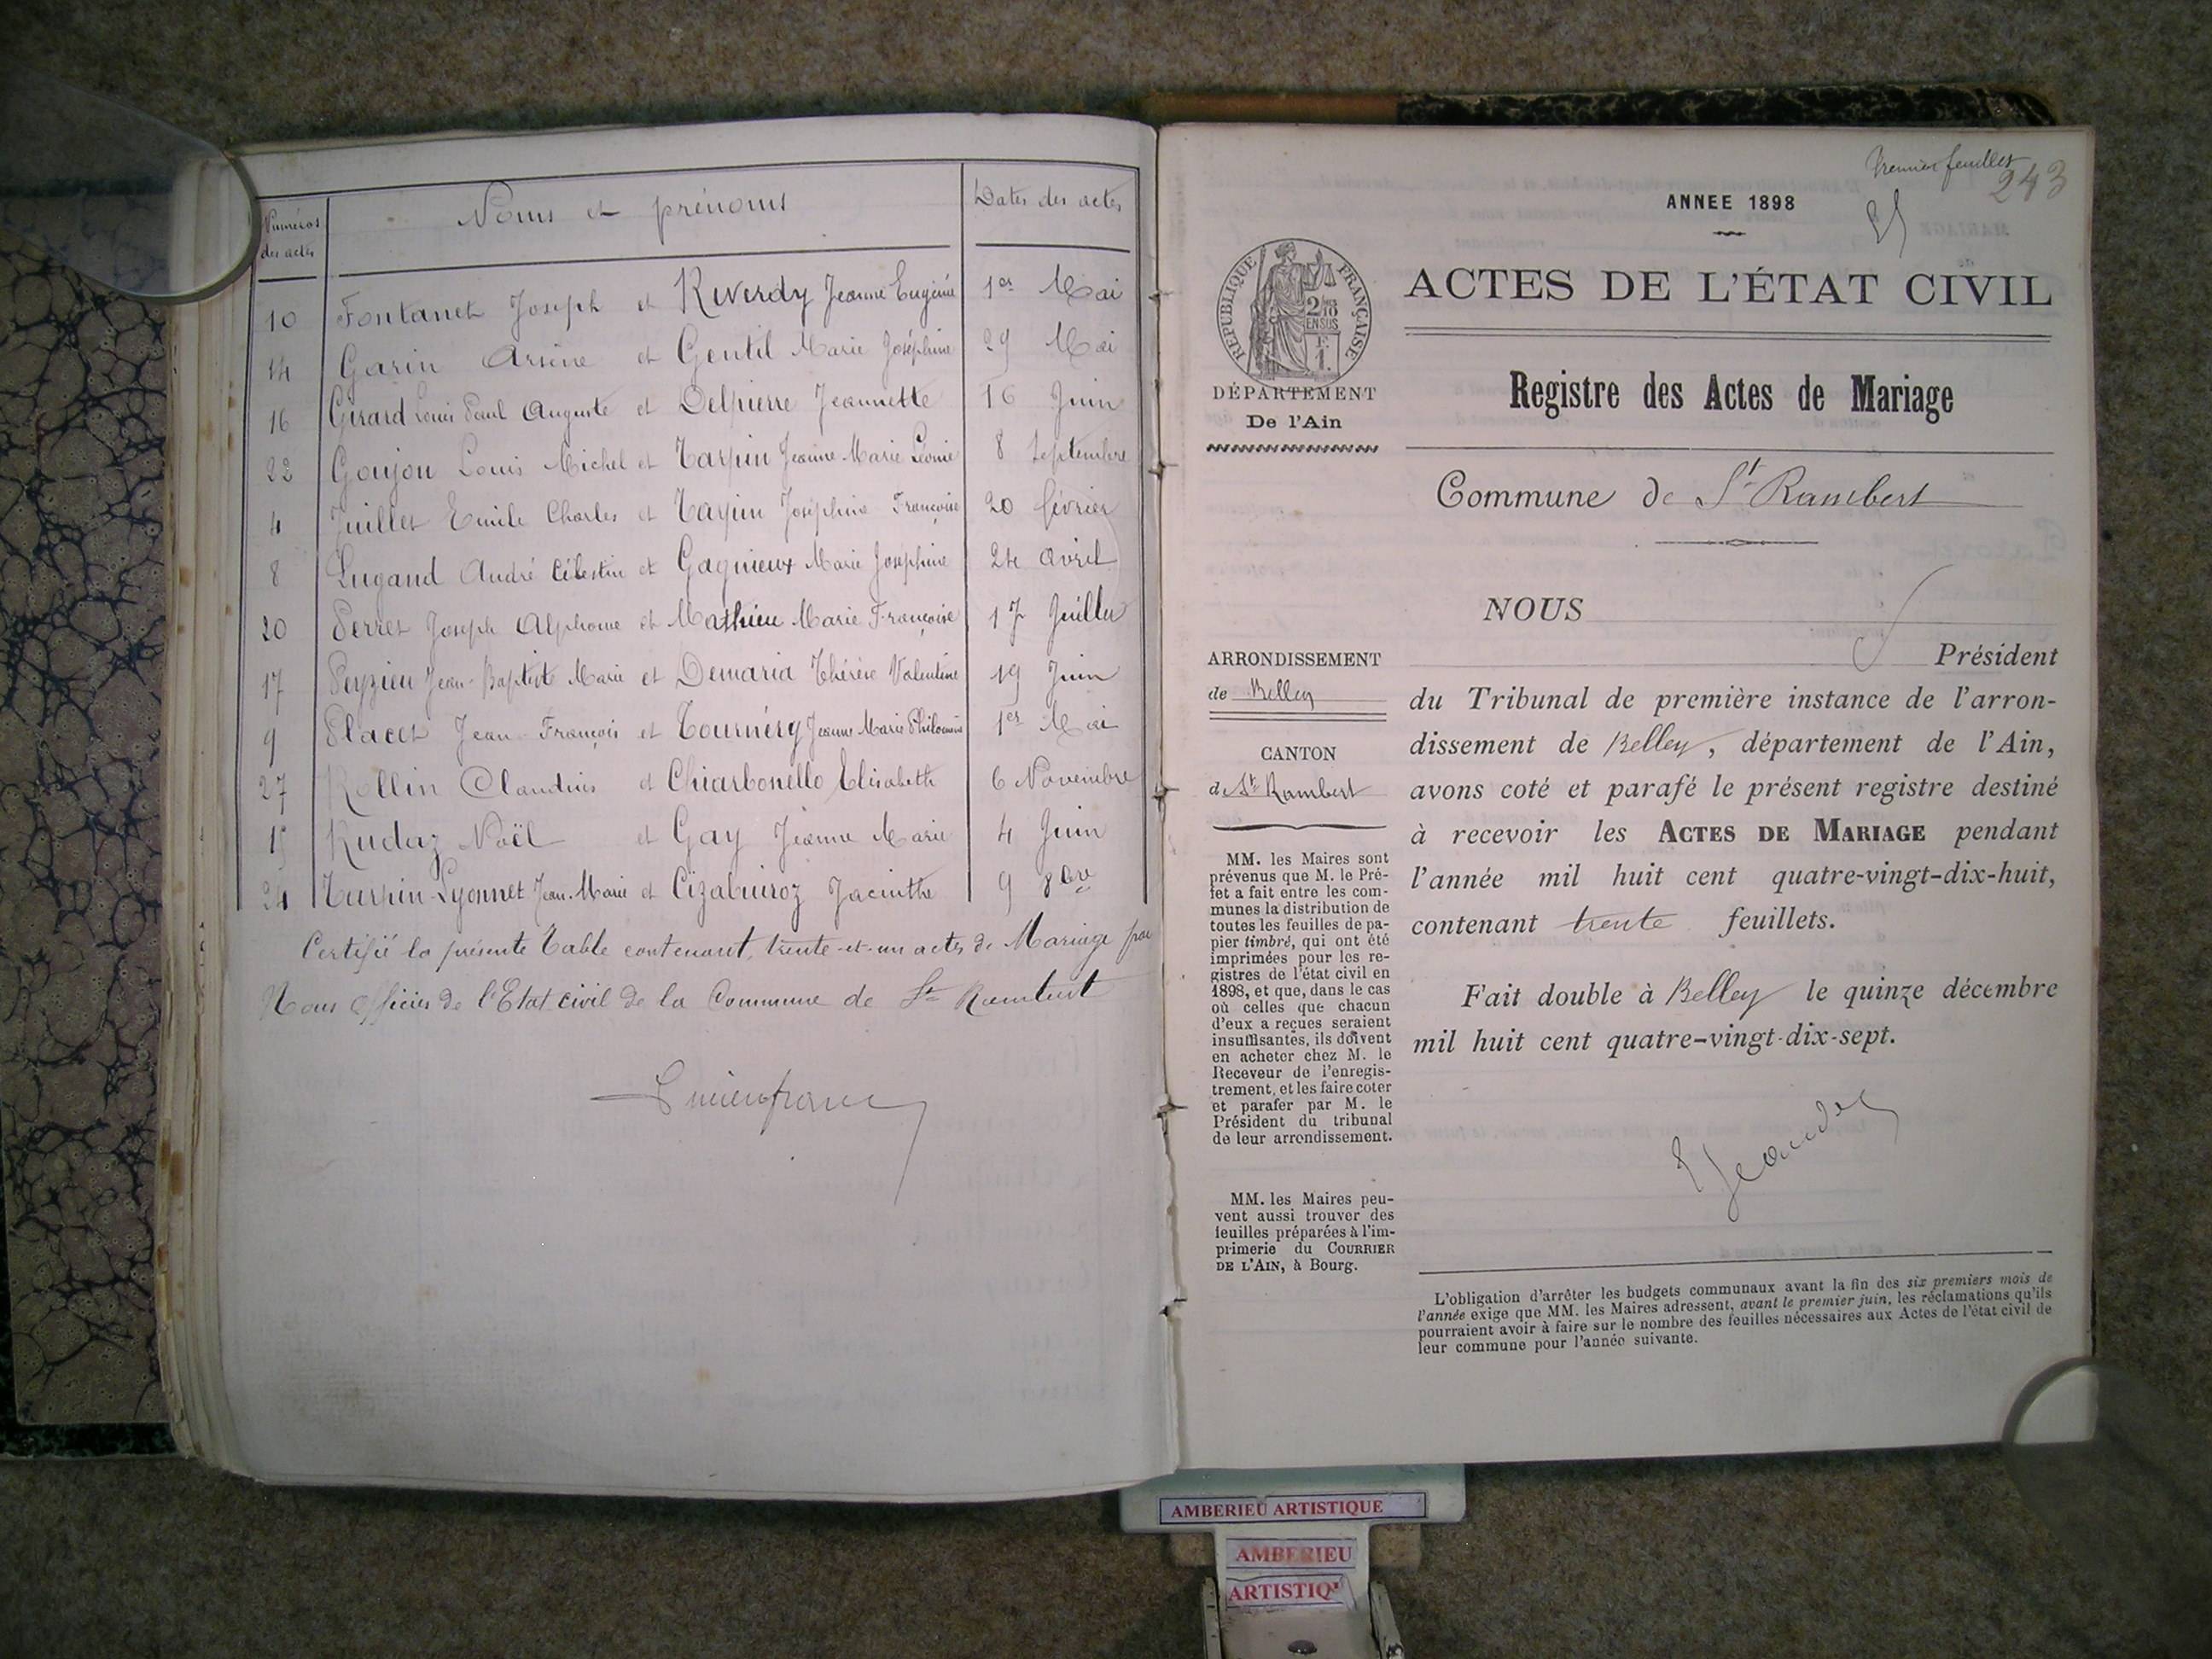 Numéros des actes | Noms et prénoms | Dates des actes
10 Fontanet Joseph et Reverdy Jeanne Eugénie 1er Mai
14 Garin Arsène et Gentil Marie Joséphine 29 Mai
16 Girard Louis Paul Auguste et Delpierre Jeannette 16 Juin
22 Goujon Louis Michel et Tarpin Jeanne Marie Léonie 8 Septembre
4 Juillet Emile Charles et Tarpin Joséphine Françoise 20 février
8 Lugand André Célestin et Gagnieux Marie Joséphine 24 avril
20 Perret Joseph Alphonse et Mathieu Marie Françoise 17 Juillet
17 Peyzieu Jean-Baptiste Marie et Demaria Thérèse Valentine 19 Juin
9 Placet Jean François et Tournéry Jeanne Marie Philomène 1er Mai
27 Rollin Claudius et Chiarbonello Elisabeth 6 Novembre
15 Rudaz Noël et Gay Jeanne Marie 4 Juin
24 Turpin-Lyonnet Jean-Marie et Jacinthe 9 8bre
Certifié la présente Table contenant trente-et-un actes de Mariage par
Nous Officier de l'Etat civil de la Commune de St Rambert
Premier feuillet
243
ANNEE 1898
ACTES DE L'ÉTAT CIVIL
RÉPUBLIQUE FRANÇAISE
2/10
EN SUS
F.
1.
DÉPARTEMENT
De l'Ain
Registre des Actes de Mariage
Commune de St Rambert
ARRONDISSEMENT
de Belley
CANTON
de St Rambert
MM. les Maires sont
prévenus que M. le Pré-
fet a fait entre les com-
munes la distribution de
toutes les feuilles de pa-
pier timbré, qui ont été
imprimées pour les re-
gistres de l'état civil en
1898, et que, dans le cas
où celles que chacun
d'eux a reçues seraient
insuffisantes, ils doivent
en acheter chez M. le
Receveur de l'enregis-
trement, et les faire coter
et parafer par M. le
Président du tribunal
de leur arrondissement.
MM. les Maires peu-
vent aussi trouver des
feuilles préparées à l'im-
primerie du COURRIER
DE L'AIN, à Bourg.
NOUS
Président
du Tribunal de première instance de l'arron-
dissement de Belley, département de l'Ain,
avons coté et parafé le présent registre destiné
à recevoir les ACTES DE MARIAGE pendant
l'année mil huit cent quatre-vingt-dix-huit,
contenant trente feuillets.
Fait double à Belley le quinze décembre
mil huit cent quatre-vingt-dix-sept.
L'obligation d'arrêter les budgets communaux avant la fin des six premiers mois de
l'année exige que MM. les Maires adressent, avant le premier juin, les réclamations qu'ils
pourraient avoir à faire sur le nombre des feuilles nécessaires aux Actes de l'état civil de
leur commune pour l'année suivante.
AMBERIEU ARTISTIQUE
AMBERIEU
ARTISTIQ